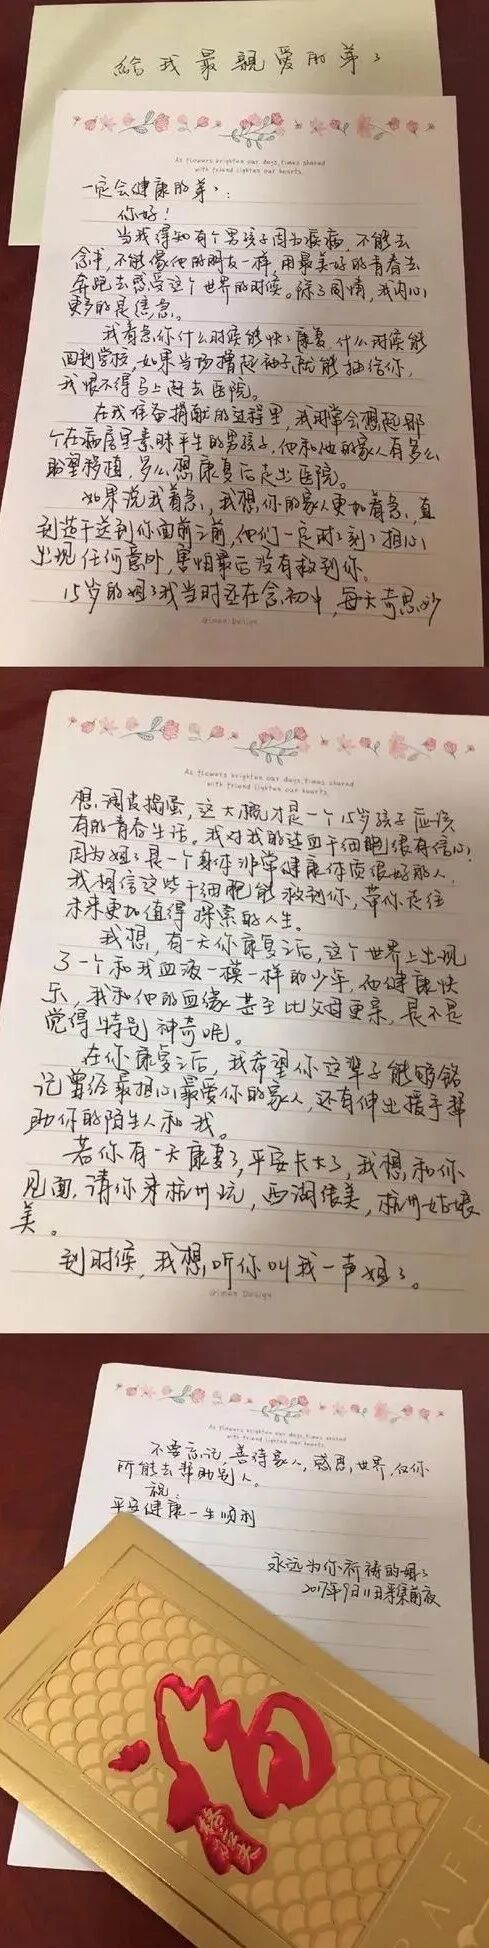 給我最親愛的弟弟
As flowers brighten our days, times shared
with friend lighten our hearts.
一定会健康的弟弟:
你好!
当我得知有个男孩子因为疾病,不能去
念书,不能像他的朋友一样,用最美好的青春去
奔跑去感受这个世界的时候。除了同情,我内心
更多的是信念。
我着急你什么时候能快快康复,什么时候能
回到学校,如果当场撸起袖子就能抽给你,
我恨不得马上赶去医院。
在我准备捐献的过程里,我时常会想起那
个在病房里素昧平生的男孩子,他和他的家人有多么
盼望移植,多么想康复后走出医院。
如果说我着急,我想,你的家人更加着急,直
到干送到你面前之前,他们一定时时刻刻担心
出现任何意外,害怕最后没有救到你。
15岁的姐姐我当时还在念初中,每天奇思妙
@imen Design
As flowers brighten our days, times shared
with friend lighten our hearts.
想,调皮捣蛋,这大概才是一个15岁孩子应该
有的青春生活。我对我的造血干细胞很有信心,
因为姐姐是一个身体非常健康体质很好的人,
我相信这些干细胞能救到你,带你走往
未来更加值得探索的人生。
我想,有一天你康复之后,这个世界上出现
了一个和我血液一模一样的少年,他健康快
乐,我和他的血缘甚至比父母更亲,是不是
觉得特别神奇呢。
在你康复之后,我希望你这辈子能够铭
记曾经最担心最爱你的家人,还有伸出援手帮
助你的陌生人和我。
若你有一天康复了,平安长大了,我想,和你
见面,请你来杭州玩,西湖很美,杭州姑娘
美。
到时候,我想,听你叫我一声姐姐。
@imen Design
As flowers brighten our days, times shared
with friend lighten our hearts.
不要忘记,善待家人,感恩,世界,仅你
所能去帮助别人。
祝:
平安健康一生顺利
永远为你祈祷的姐姐
2017年9月11日采集前夜
福